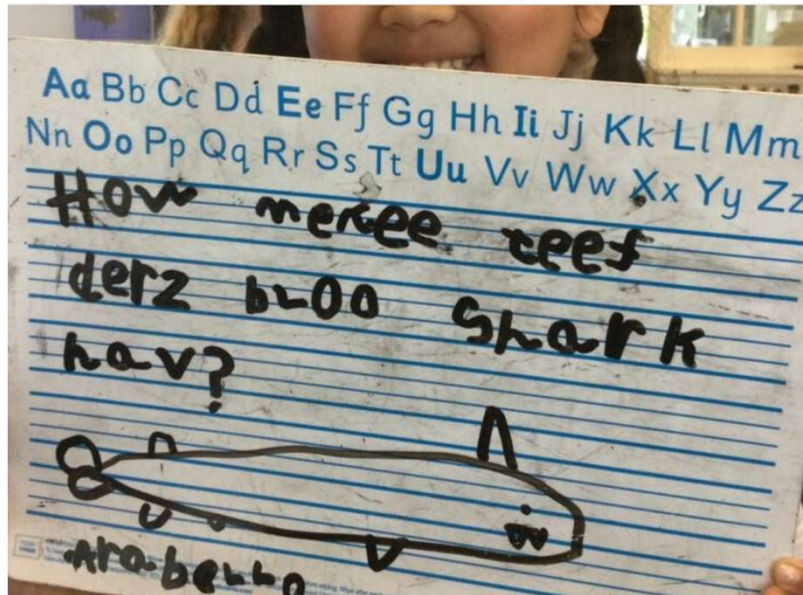 Aa Bb Cc Dd Ee Ff Gg Hh Ii Jj Kk Ll Mm
Nn Oo Pp Qq Rr Ss Tt Uu Vv Ww Xx Yy Zz
How menee teef
derz bloo Shark
hav?
Arabella